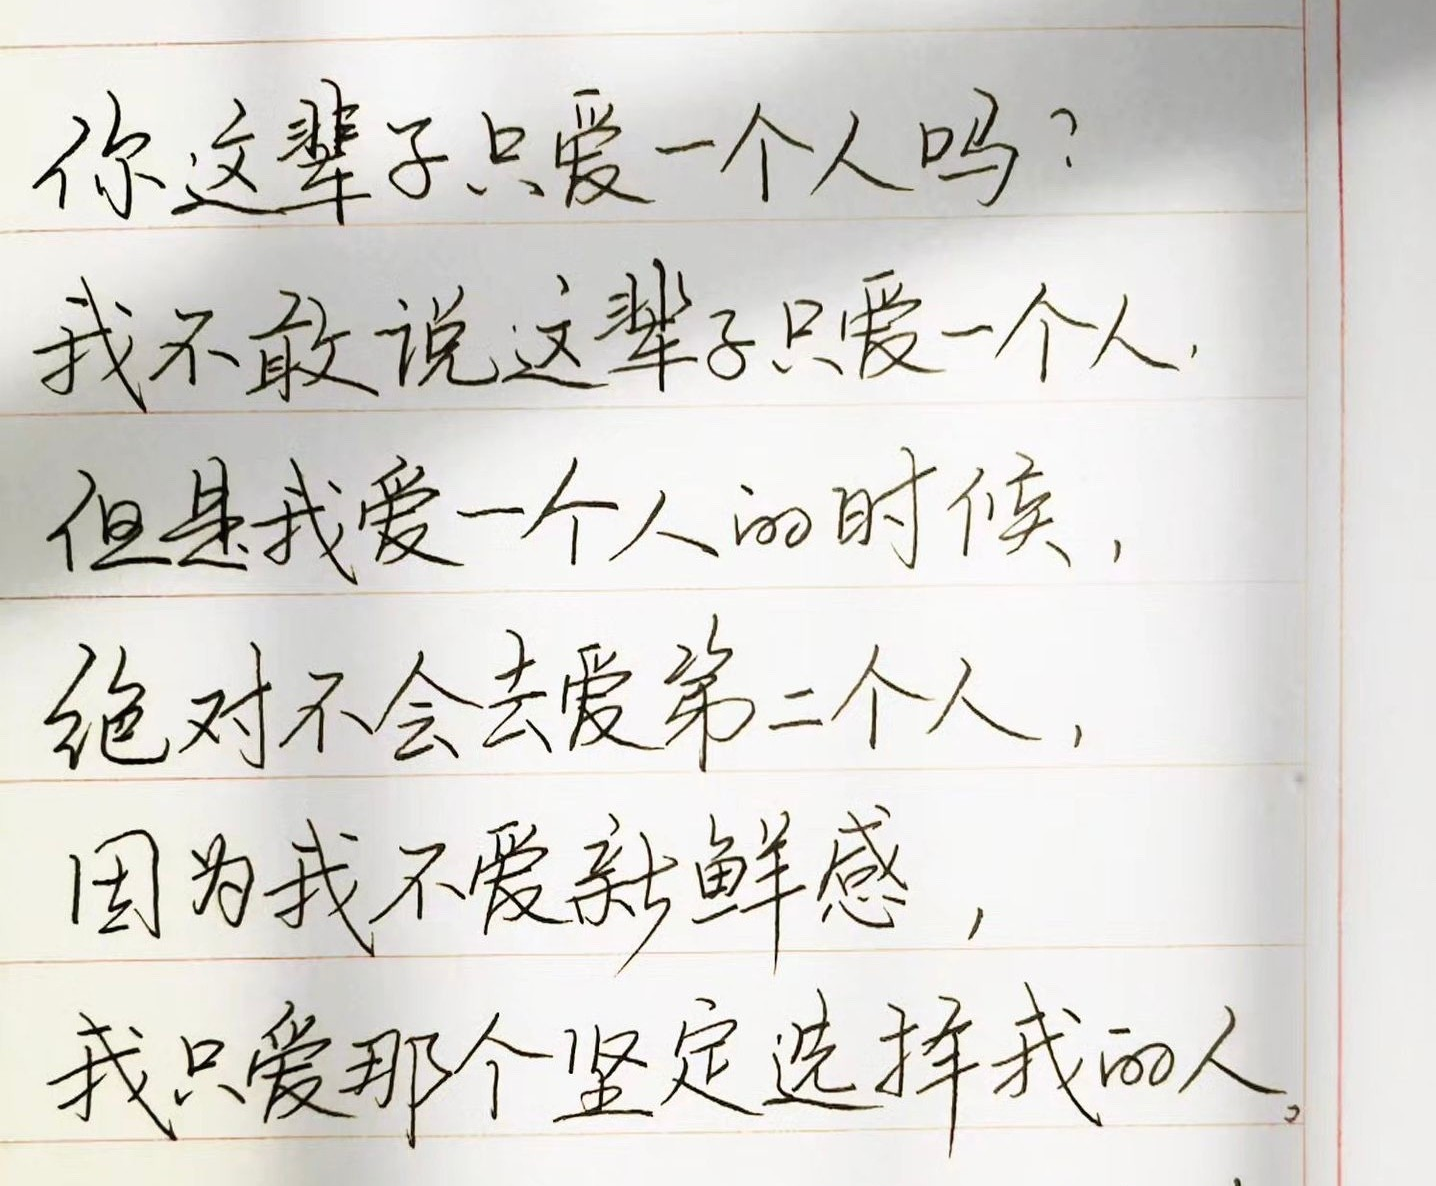 你这辈子只爱一个人吗?
我不敢说这辈子只爱一个人,
但是我爱一个人的时候,
绝对不会去爱第二个人,
因为我不爱新鲜感,
我只爱那个坚定选择我的人。